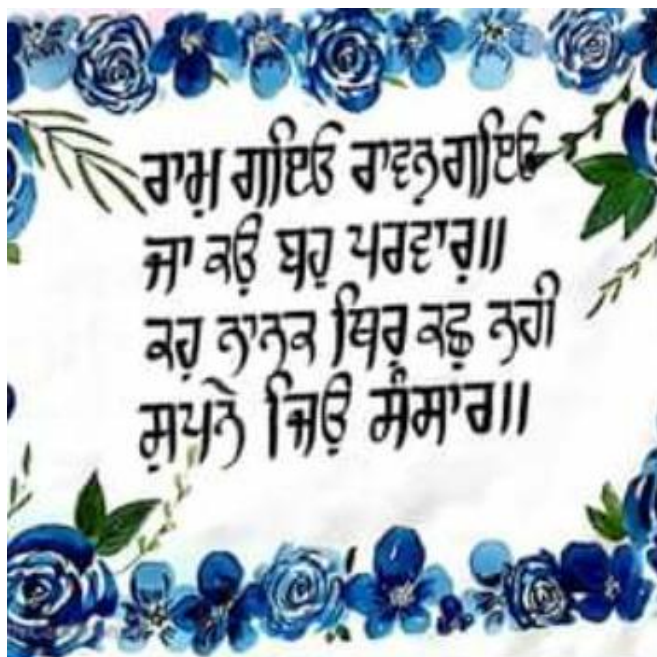 ਰਾਮੁ ਗਇਓ ਰਾਵਨੁ ਗਇਓ
ਜਾ ਕਉ ਬਹੁ ਪਰਵਾਰੁ॥
ਕਹੁ ਨਾਨਕ ਥਿਰੁ ਕਛੁ ਨਹੀ
ਸੁਪਨੇ ਜਿਉ ਸੰਸਾਰ॥